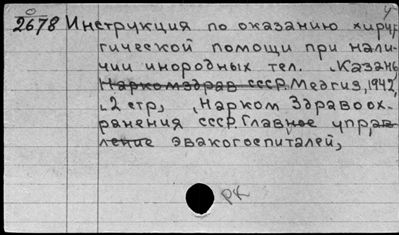 2678 Инструкция по оказанию хирур
гической помощи при нали-
чии инородных тел. Казань,
Наркомздрав СССР. Медгиз, 1942,
2 стр, Нарком Здравоох-
ранения СССР. Главное управ
ление эвакогоспиталей,
РК